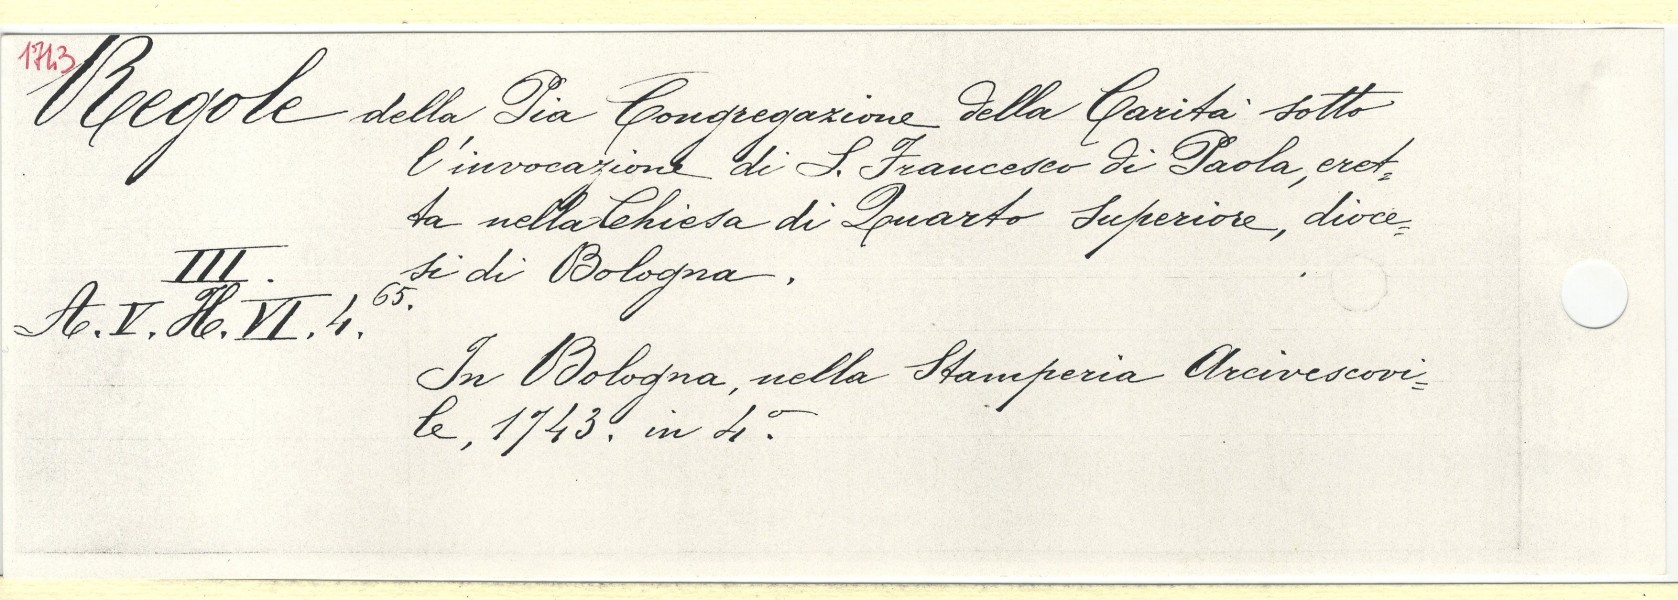 1743
Regole della Pia Congregazione della Carità sotto
l'invocazione di S. Francesco di Paola, eret=
ta nella Chiesa di Quarto Superiore, dioce=
si di Bologna.
III.
A.V.H.VI.4.65.
In Bologna, nella Stamperia Arcivescovi=
le, 1743. in 4.º